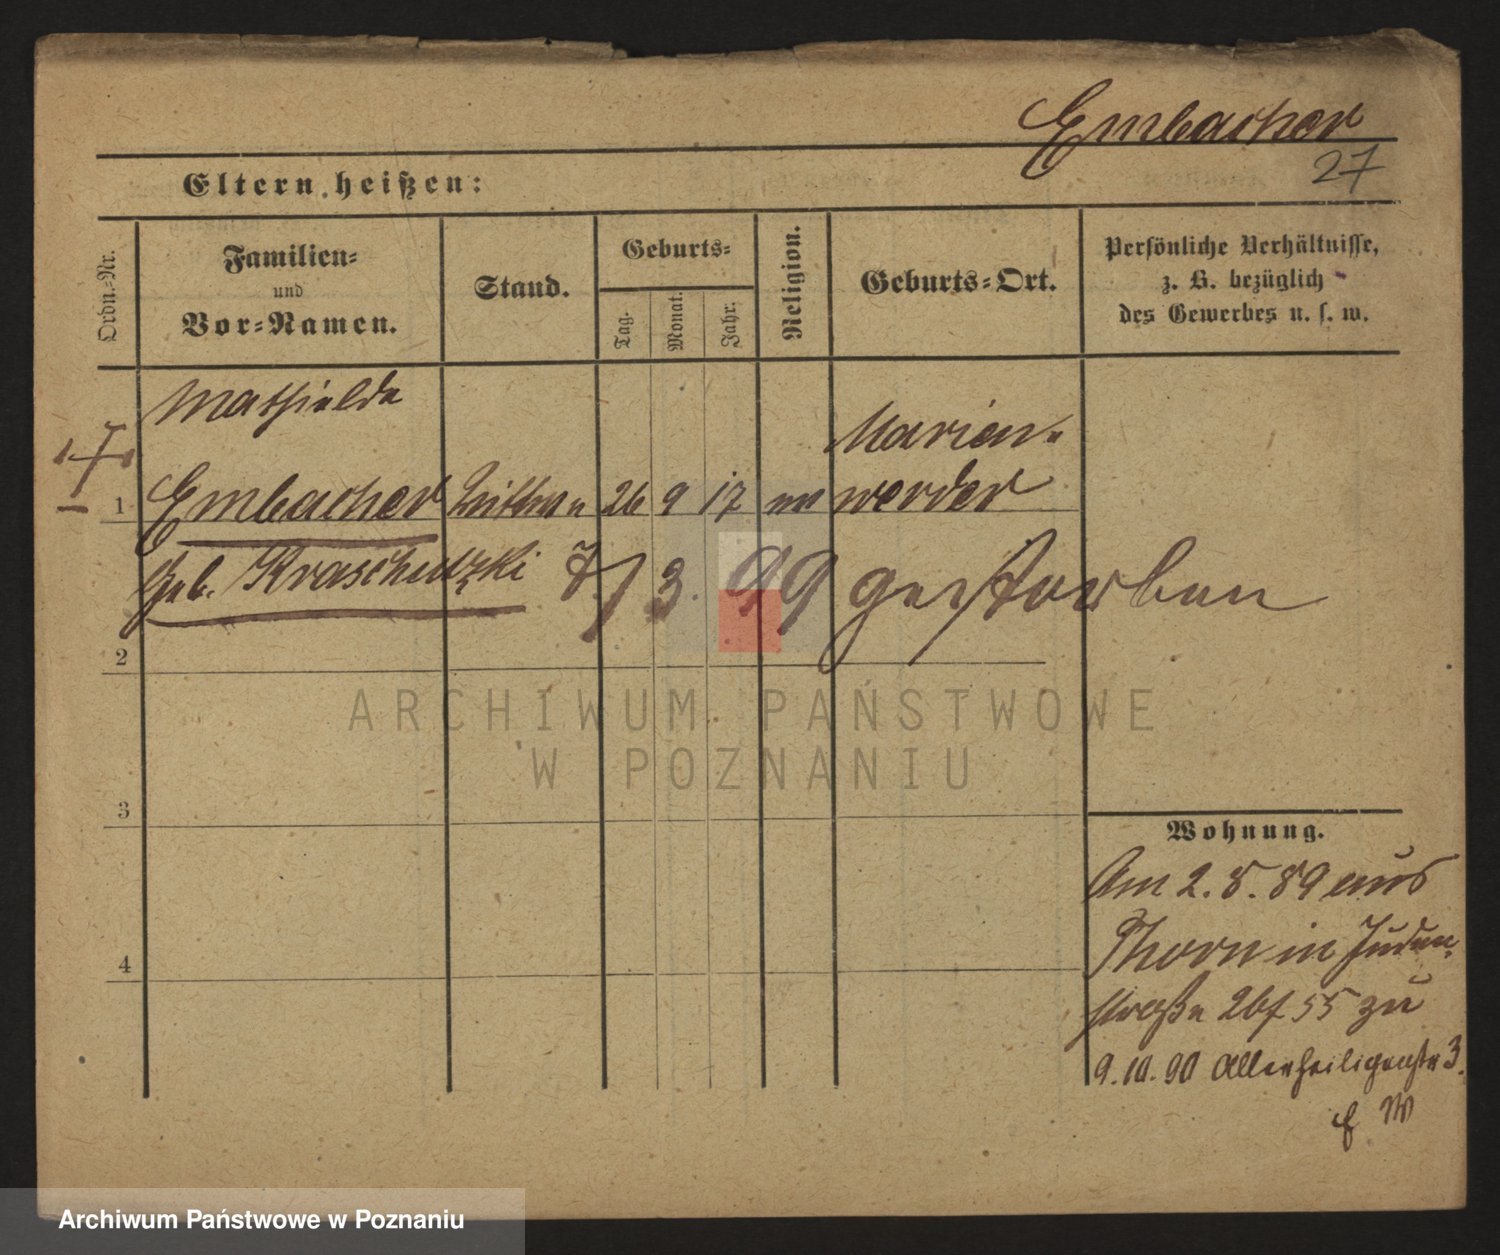 Embacher
27
Eltern heißen:
Ordn.-Nr.
Familien-
und
Vor-Namen.
Stand.
Geburts-
Tag.
Monat.
Jahr.
Religion.
Geburts-Ort.
Persönliche Verhältnisse,
z. B. bezüglich
des Gewerbes u. s. w.
Mathielde
Marien-
1 Embacher Wittwe 26 9 17 werder
geb. Kraschutzki 7/3. 99 gestorben
2
ARCHIWUM PAŃSTWOWE
W POZNANIU
3
Wohnung.
Am 2. 8. 89 aus
Thorn in Juden-
4
straße 55 zu
9.10.90 Allerheiligenstr 3.
Archiwum Państwowe w Poznaniu